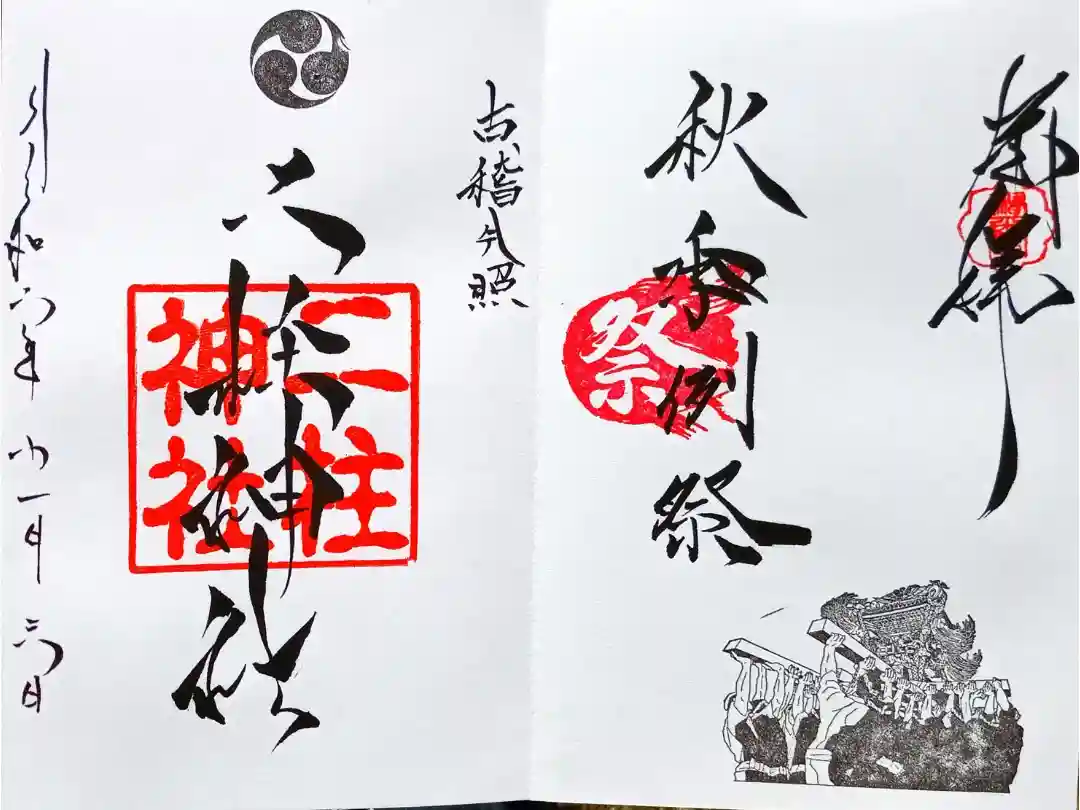 秋季例祭
祭
古稽今照
二柱神社
二柱神社
令和六年 十一月 三日